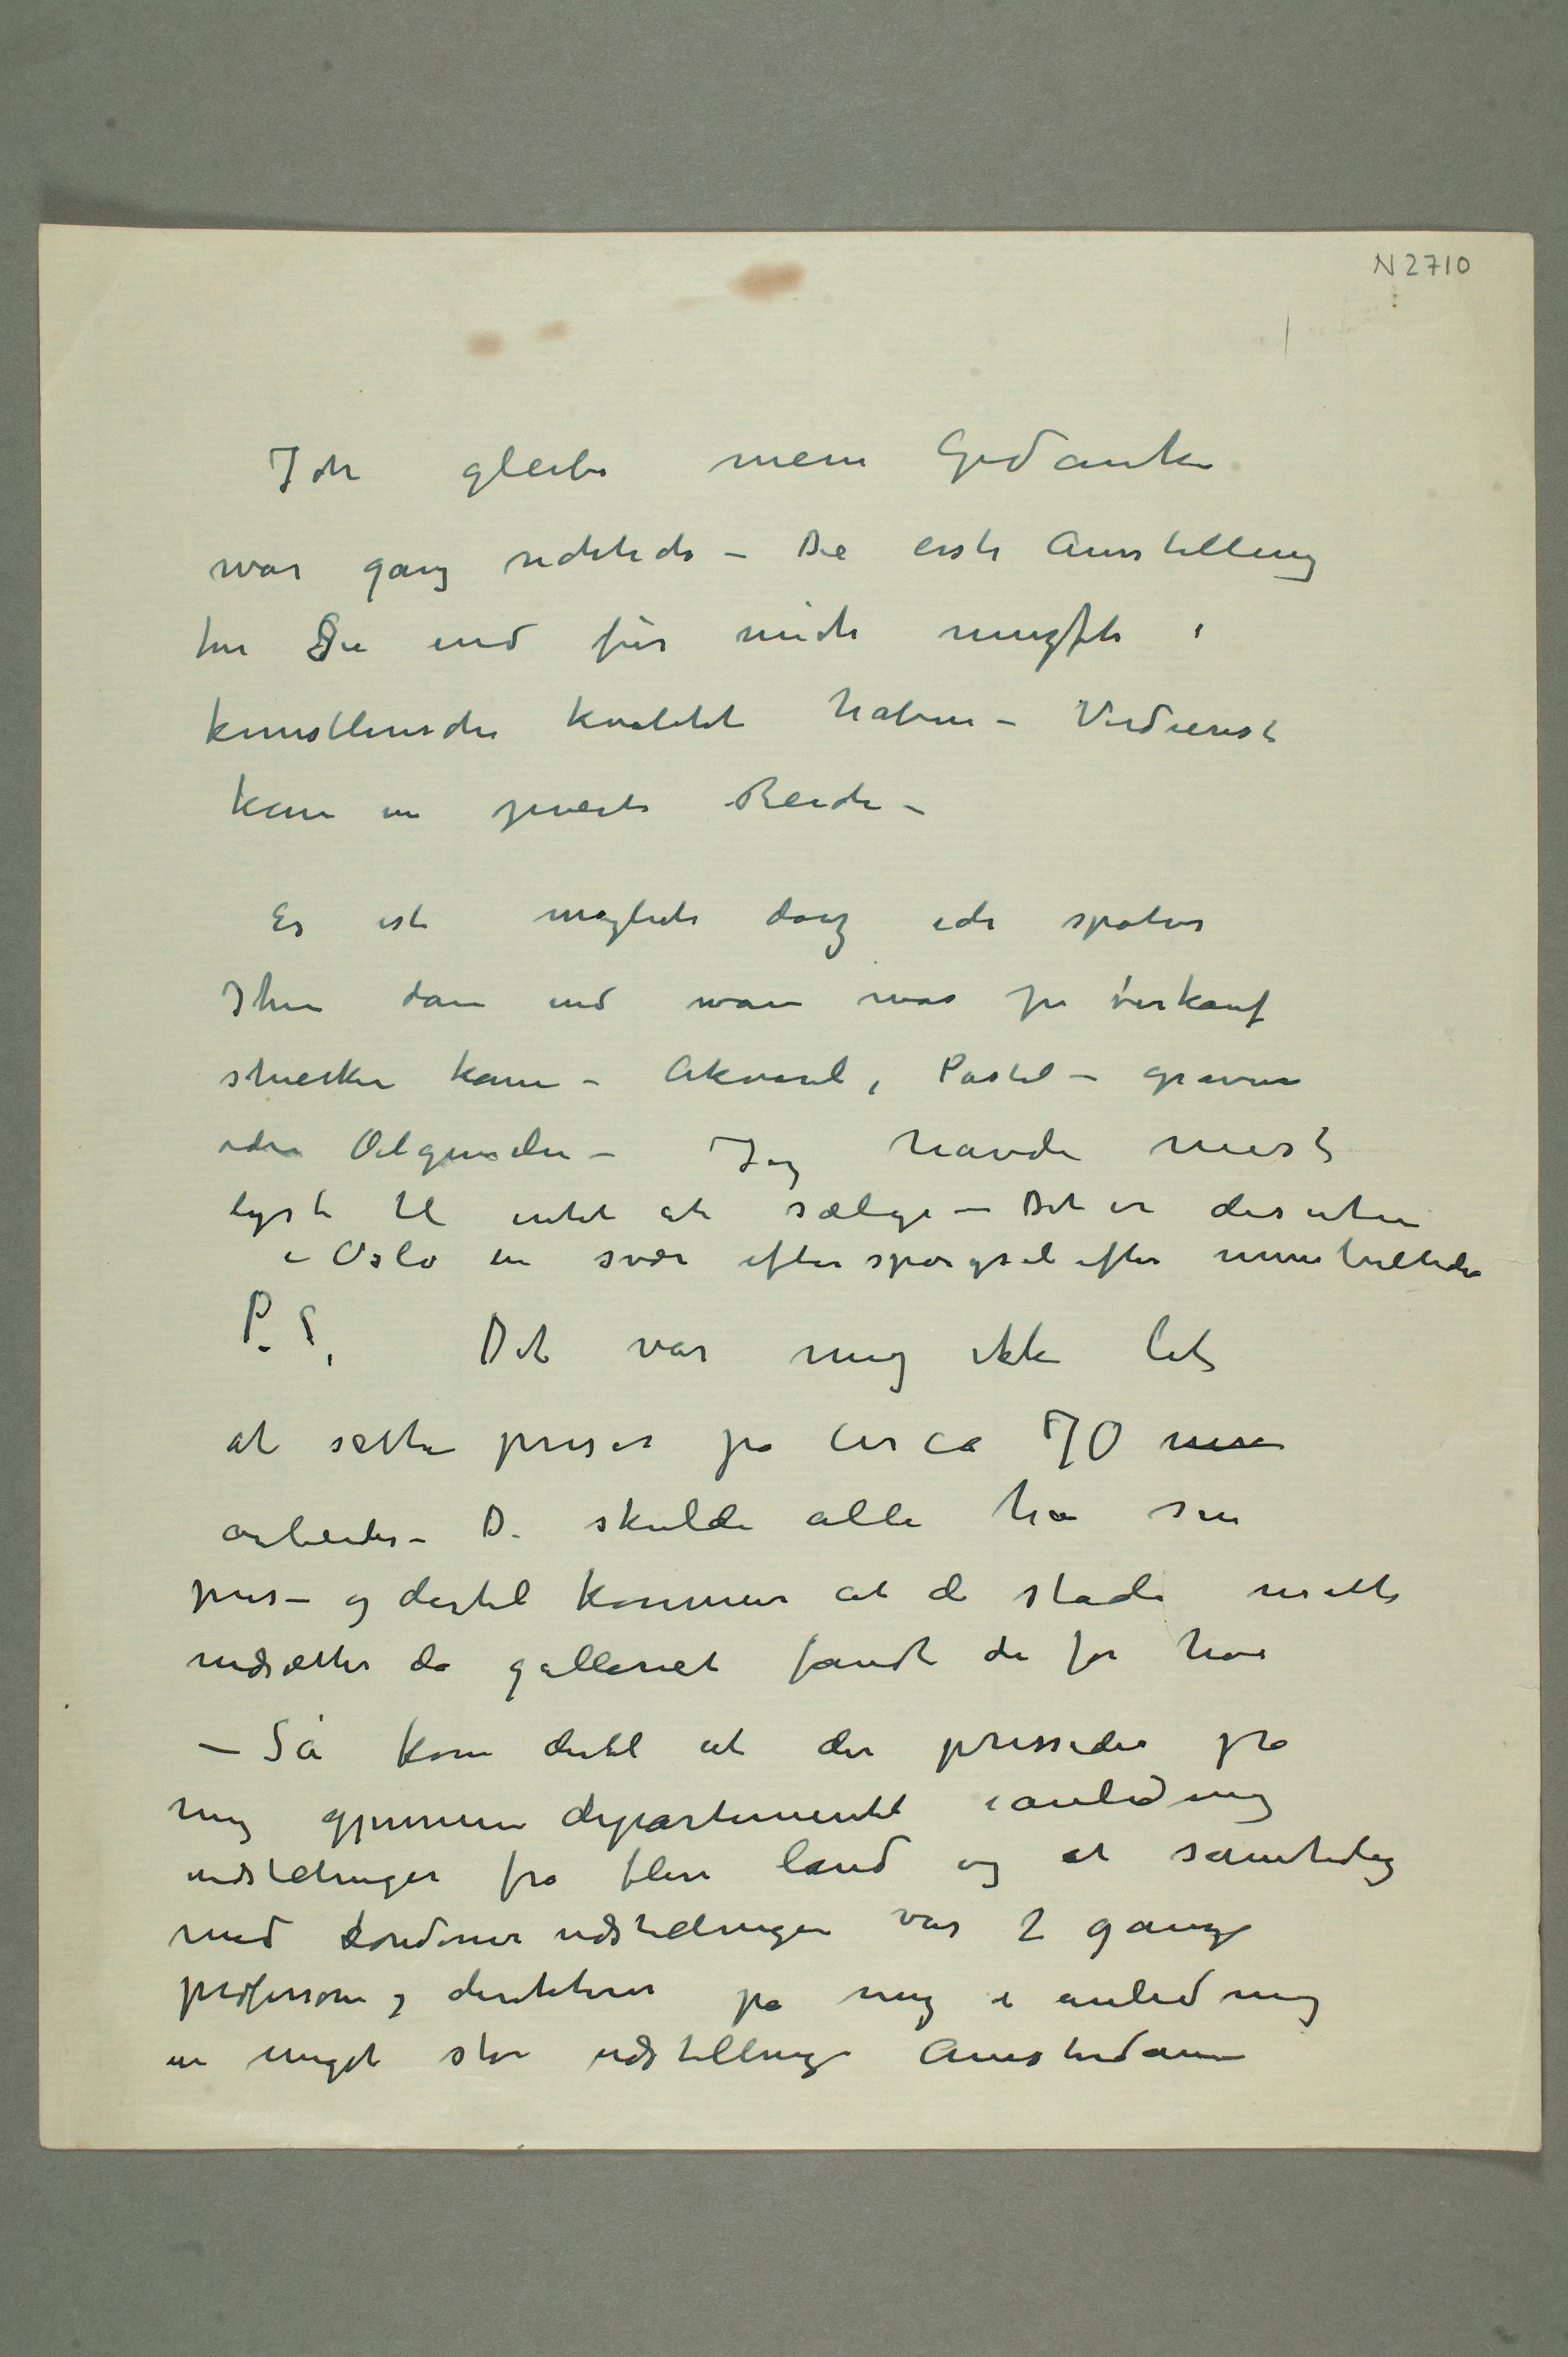 N 2710
Ich gleibe mein Gedanke
war ganz richtich – Die erste Ausstellung
für Sie und für mich mußte i
kunstlerische kvalitet haben – Verdienst
kam in zweite Reihe –
Es ist möglich daß ich später
Ihn dan und wan was zu verkauf
schicken kann – Akvarel, Pastel – gravure
oder Oelgemelde – Jeg havde mest
lyst til intet at sælge – Det er desuten
i Oslo en svær efterspørgsel efter mine billeder
P.S. Det var mig ikke let
at sætte priser på circa 70 mine
arbeider – De skulde alle ha sin
pris – og dertil kommer at de stadi måtte
nedsættes da galleriet fandt de for høie
– Så kom dertil at der pressedes på
mig gjennem departementet i anledning
udstillinger fra flere land og at samtidig
med Londoner udstillingen var 2 gange
professorer og direktører på mig i anledning
en meget stor udstilling i Amsterdam